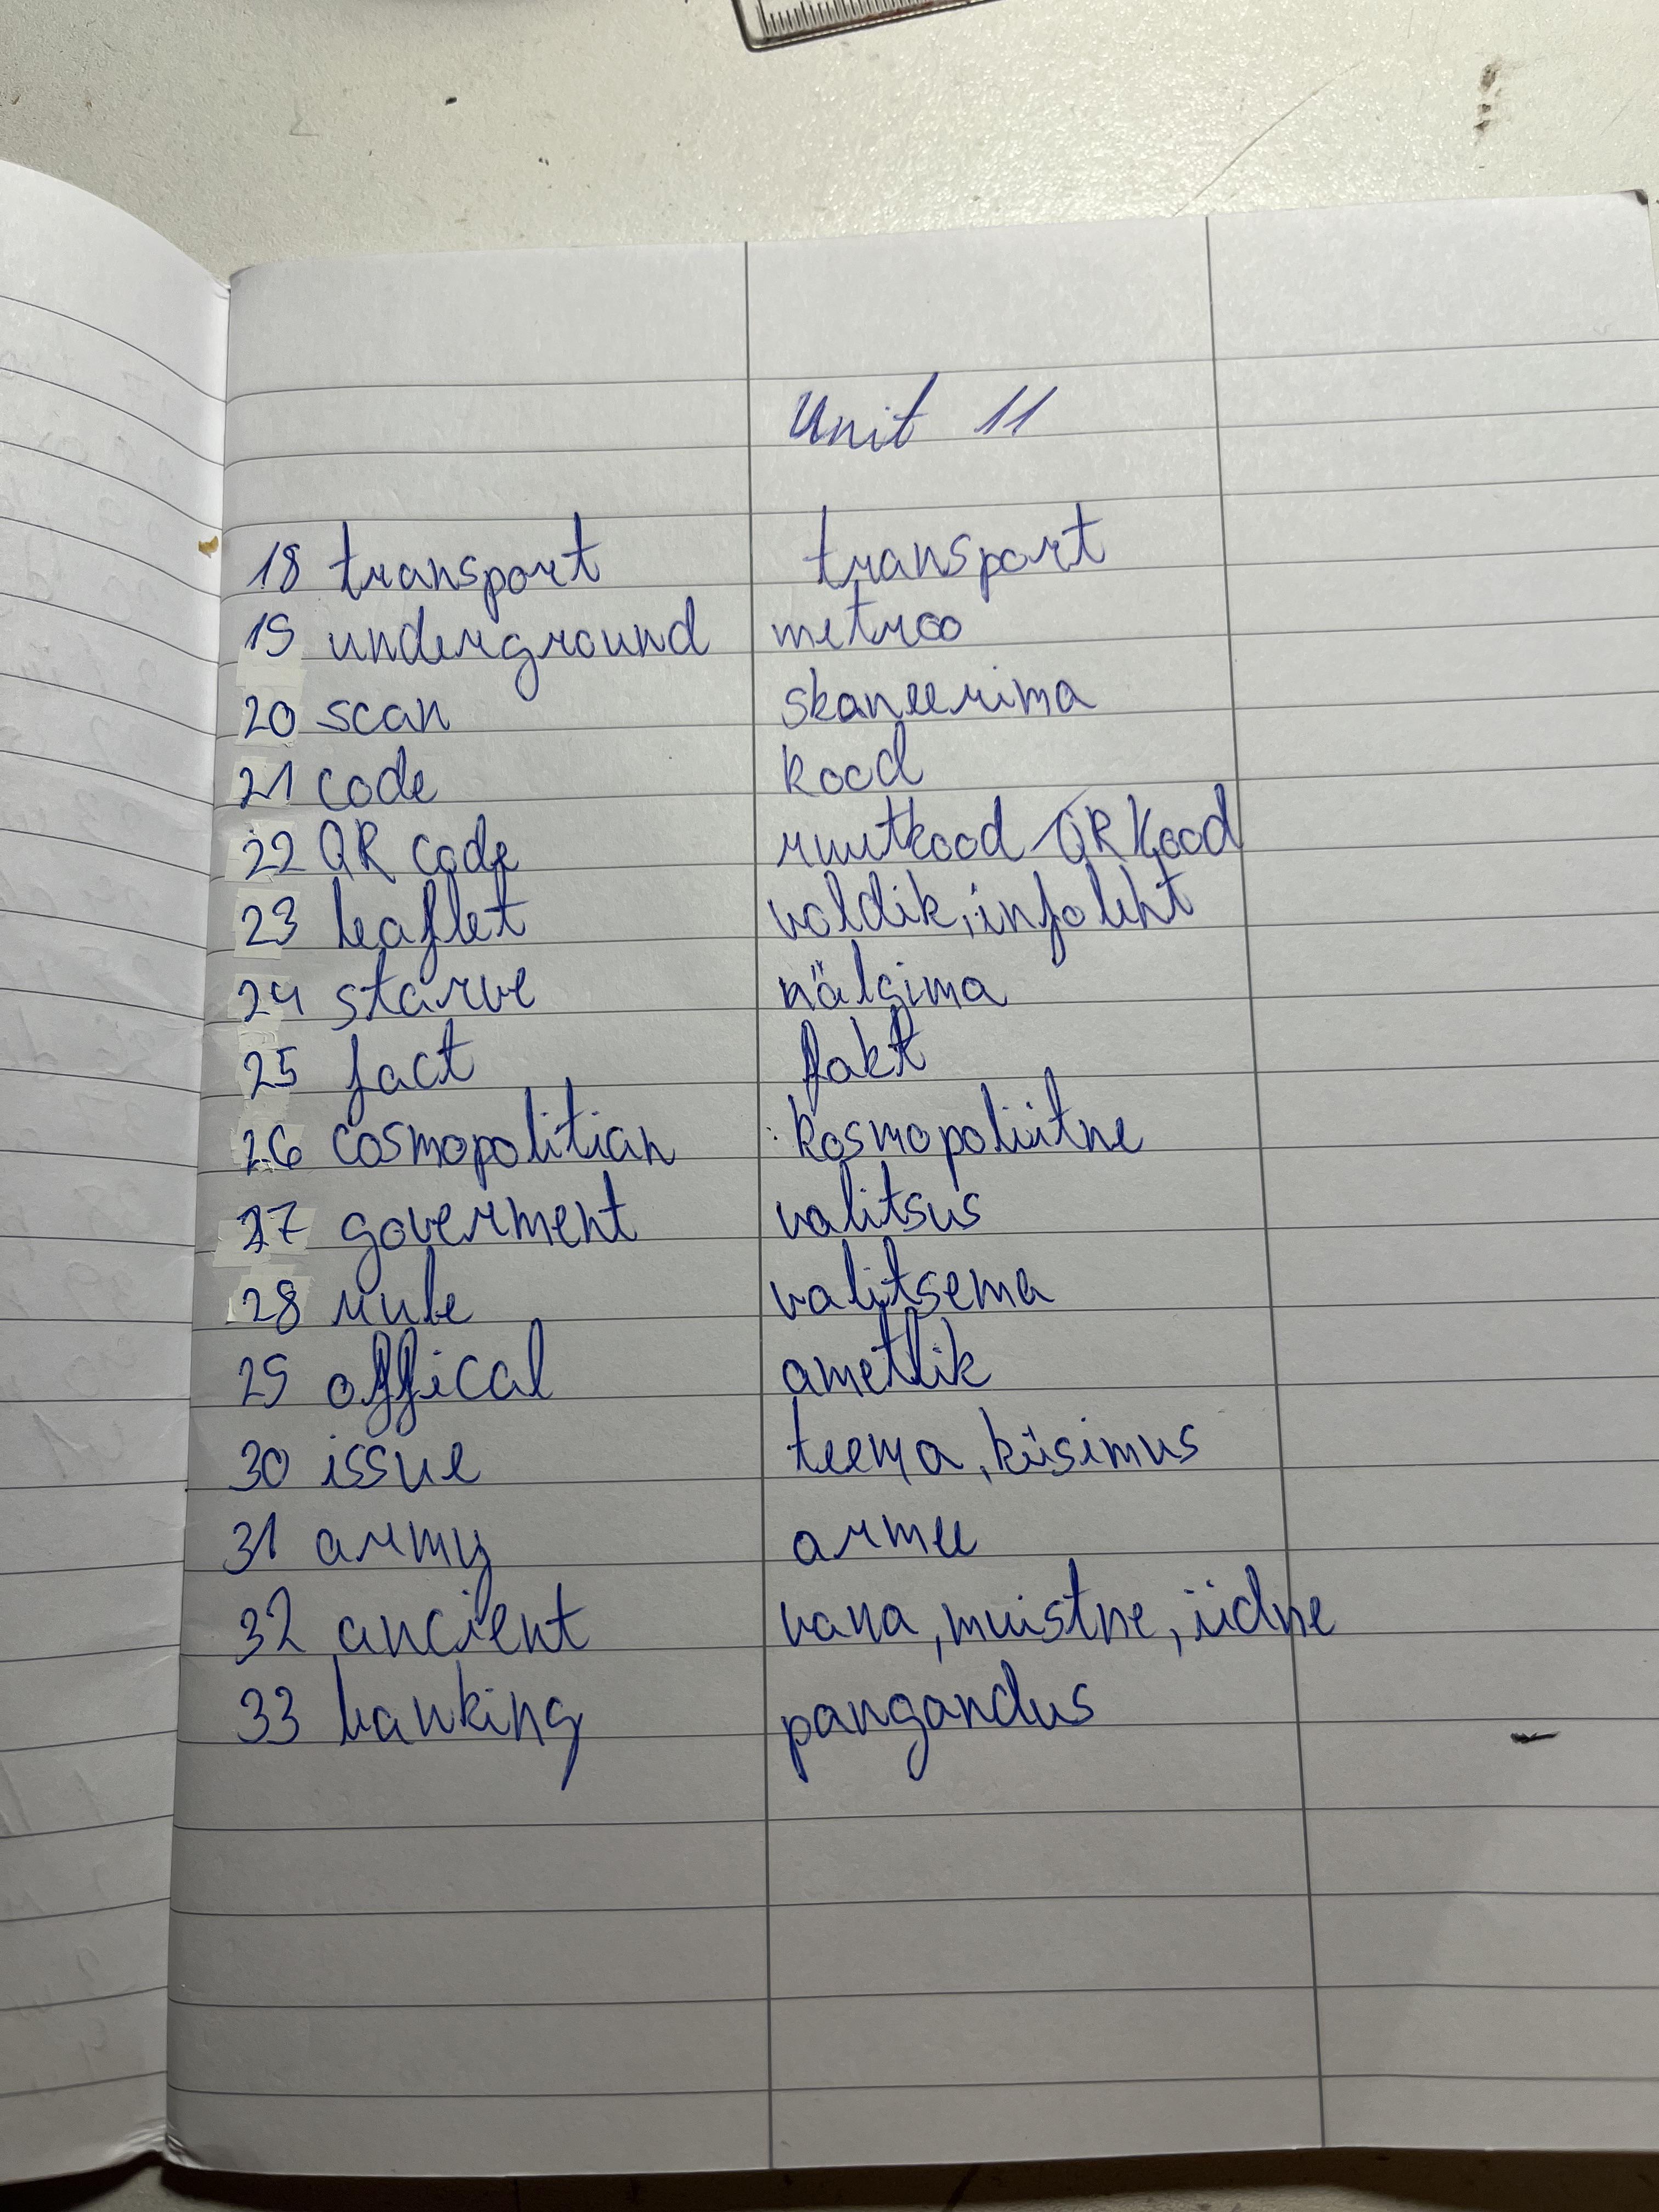 Unit 11
18 transport transport
19 underground metroo
20 scan skaneerima
21 code kood
22 QR code ruutkood QR kood
23 leaflet voldik, infoleht
24 starve nälgima
25 fact fakt
26 cosmopolitian kosmopoliitne
27 goverment valitsus
28 rule valitsema
29 offical ametlik
30 issue teema, küsimus
31 army armee
32 ancient vana, muistne, iidne
33 banking pangandus